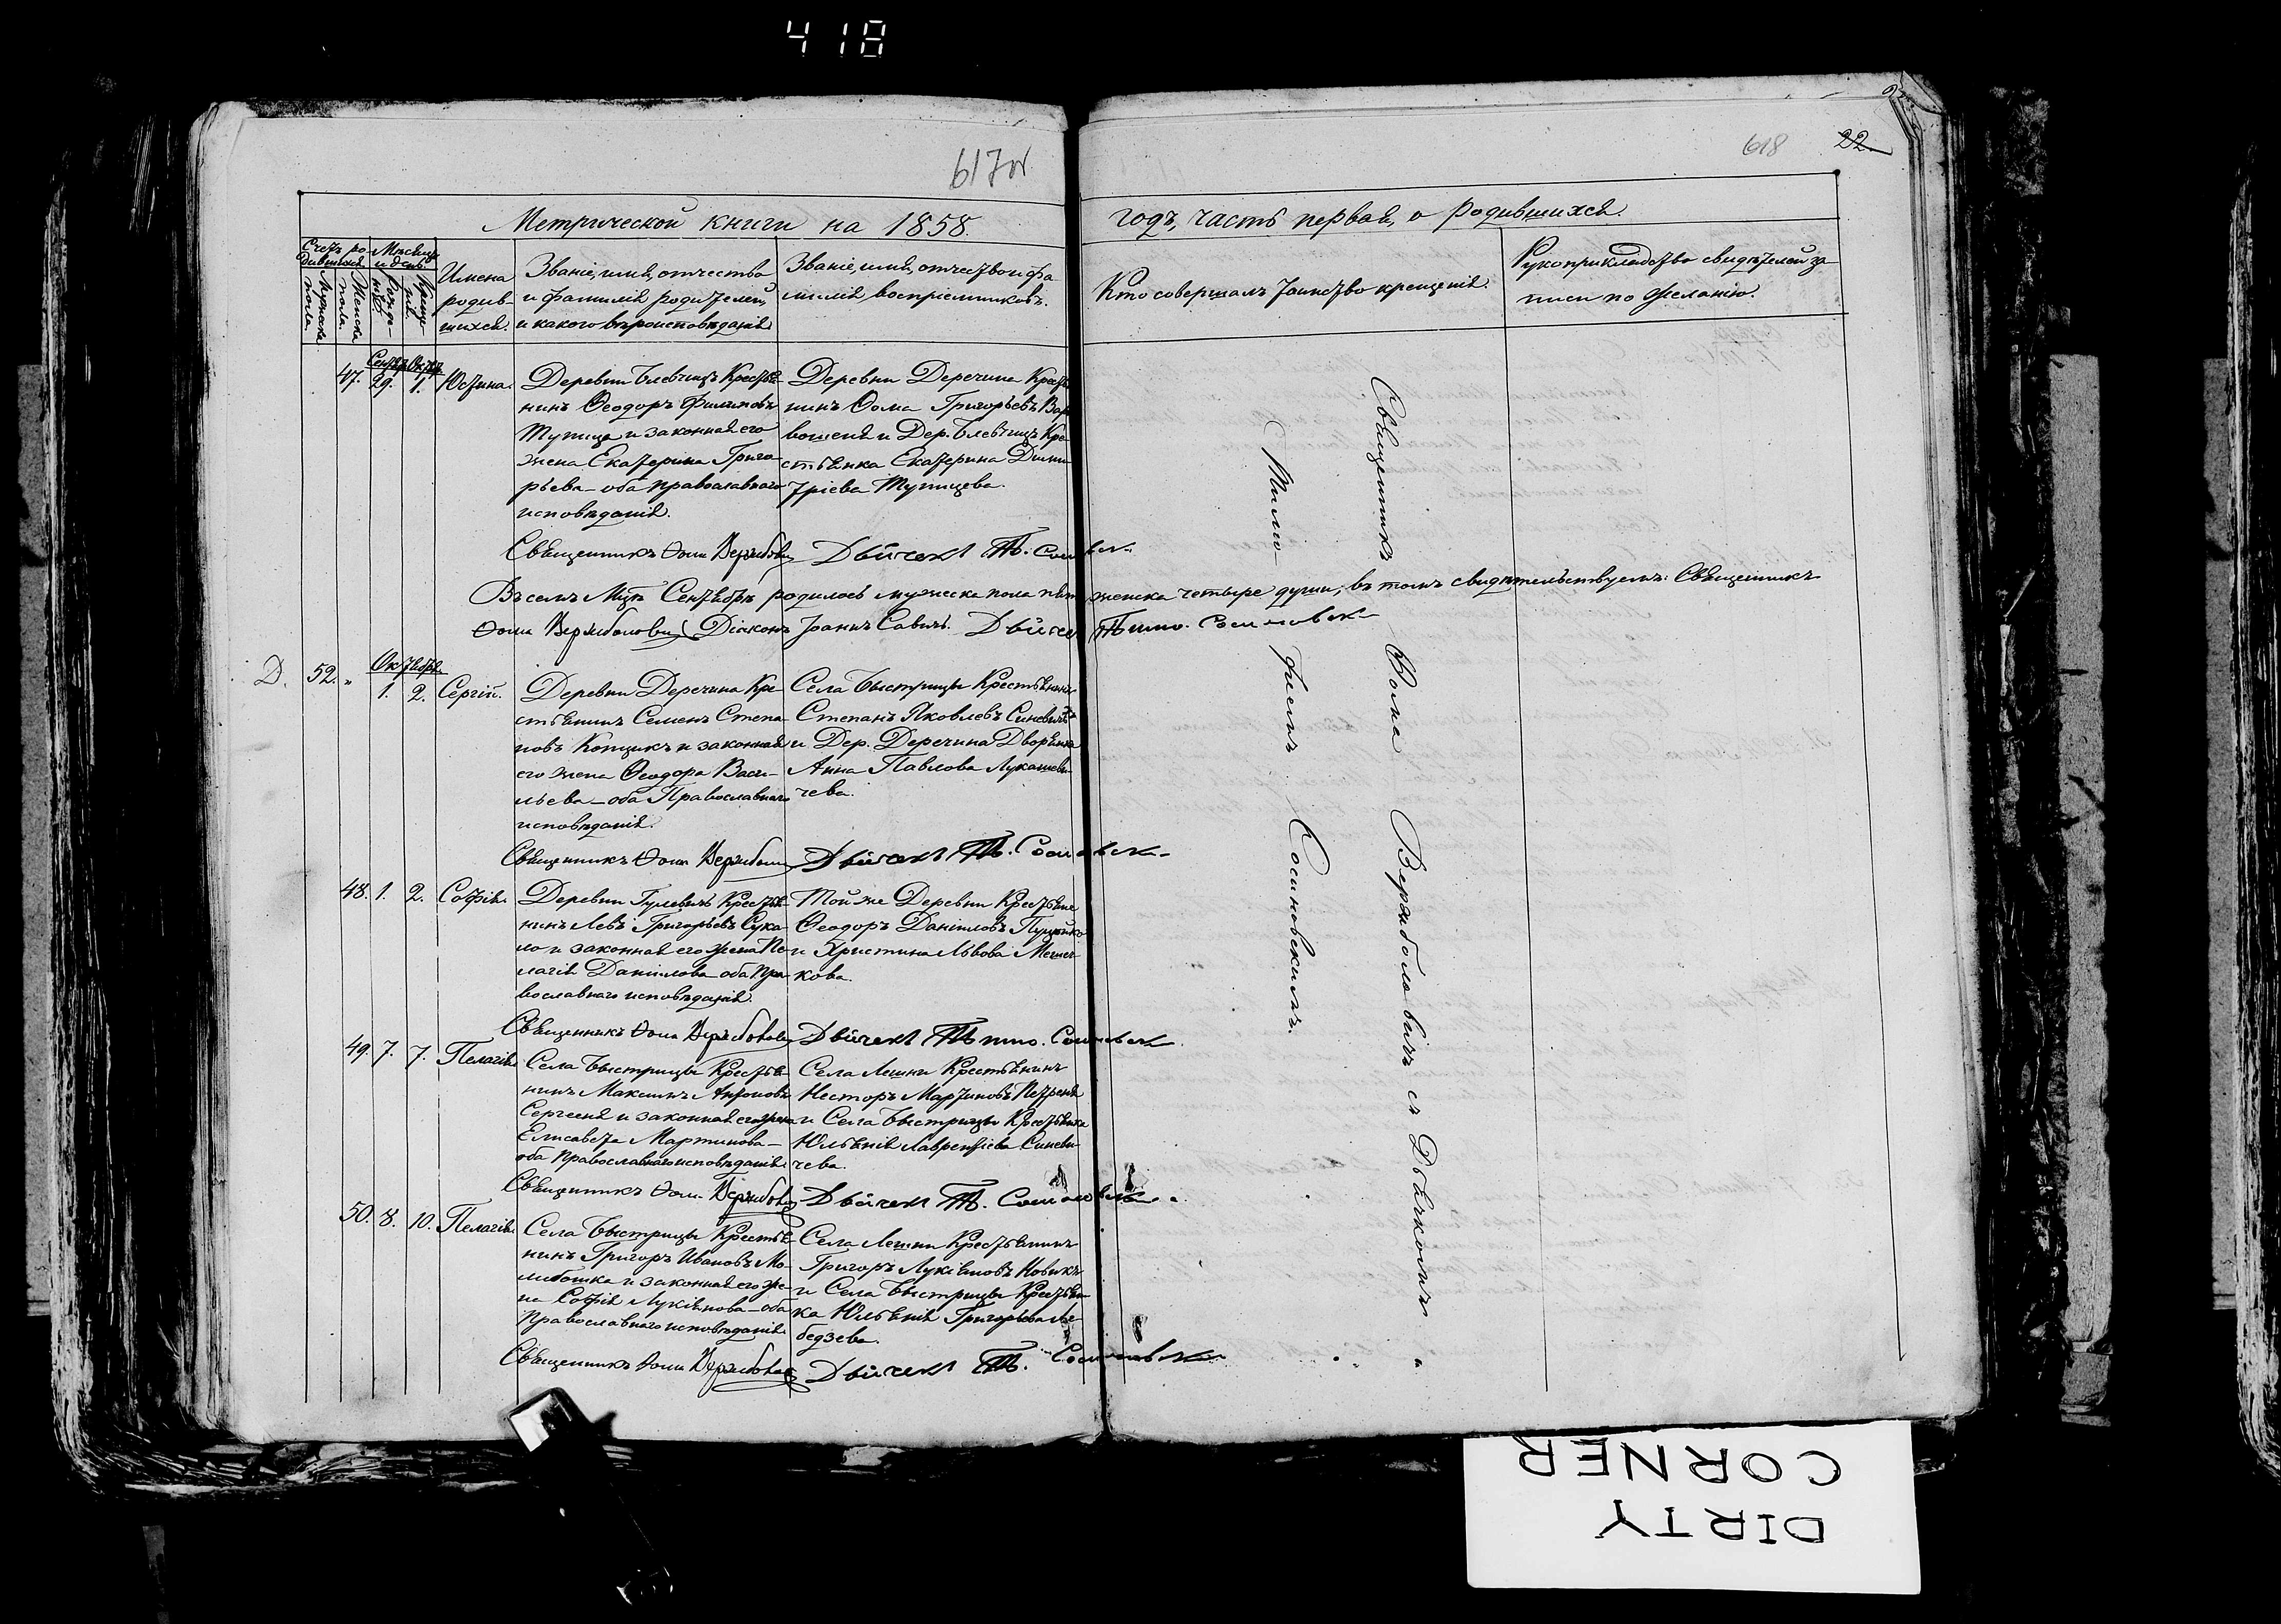 418
617об
618
22.
Метрической книги на 1858.
годъ, часть первая, о родившихся.
Счетъ родившихся
Мѣсяцъ и день
Мужеска пола.
Женска пола.
Рожденія
Крещенія
Имена
родив-
шихся.
Званіе, имя, отчество
и фамилія родителей,
и какого вѣроисповѣданія
Званіе, имя, отчество и фа
милія воспріемниковъ.
Кто совершалъ таинство крещенія.
Рукоприкладство свидѣтелей за-
писи по желанію.
Сентяб. Октяб.
47. 29. 1. Юстина.
Деревни Блевчицъ Крестья-
нинъ Ѳеодоръ Филимоновъ
Тупица и законная его
жена Екатерина Григо-
рьева оба православнаго
исповѣданія.
Деревни Деречина Крестья
нинъ Ѳома Григорьевъ Вар
вошеня и Дер. Блевчицъ Кре-
стьянка Екатерина Дими-
тріева Тупицева.
Священникъ Ѳома Вержболович Дьячекъ Т. Сосиновск.
Въ семъ Мцѣ Сентябрѣ родилось мужеска пола пять женска четыре души, въ томъ свидѣтельствуемъ: Священникъ
Ѳома Вержболович Діяконъ Іоаннъ Савичъ. Дьячек Тимо. Сосиновск
Октября.
Д. 52. " 1. 2. Сергій.
Деревни Деречина Кре-
стьянинъ Семенъ Степа-
новъ Котчикъ и законная
его жена Ѳеодора Васи-
льева оба Православнаго
исповѣданія.
Села Быстрицы Крестьянинъ
Степанъ Яковлевъ Синевичъ
и Дер. Деречина Дворянка
Анна Павлова Лукашеви-
чева.
Священникъ Ѳома Вержболович Дьячекъ Т. Сосиновск.
48. 1. 2. Софія
Деревни Гулевичъ Крестья-
нинъ Левъ Григорьевъ Сука-
ло и законная его жена Пе-
лагія Даніилова оба Пра-
вославнаго исповѣданія.
Той же Деревни Крестьяне
Ѳеодоръ Даніиловъ
и Христина Львова
кова.
Священникъ Ѳома Вержболович Дьячекъ Тимо. Сосиновск
49. 7. 7. Пелагія
Села Быстрицы Крестья-
нинъ Максимъ Антоновъ
Сергееня и законная его жена
Елисавета Мартинова
оба Православнаго исповѣданія.
Села Лешни Крестьянинъ
Несторъ Мартиновъ Петреня
и Села Быстрицы Крестьянка
Юльянія Лаврентіева Синеви-
чева.
Священникъ Ѳома Вержболович Дьячекъ Т. Сосиновск.
50. 8. 10. Пелагія
Села Быстрицы Крестья-
нинъ Григоръ Ивановъ Мо-
либошка и законная его же-
на Софія Лукіянова оба
Православнаго исповѣданія
Села Лешни Крестьянинъ
Григоръ Лукіяновъ Новикъ
и Села Быстрицы Крестьян-
ка Юльянія Григорьева Ле-
бедзева.
Священникъ Ѳома Вержболович Дьячекъ Т. Сосиновск
Священникъ Ѳома Вержболовичъ съ Дьячкомъ
Тимо-
феемъ Сосиновскимъ.
DIRTY
CORNER